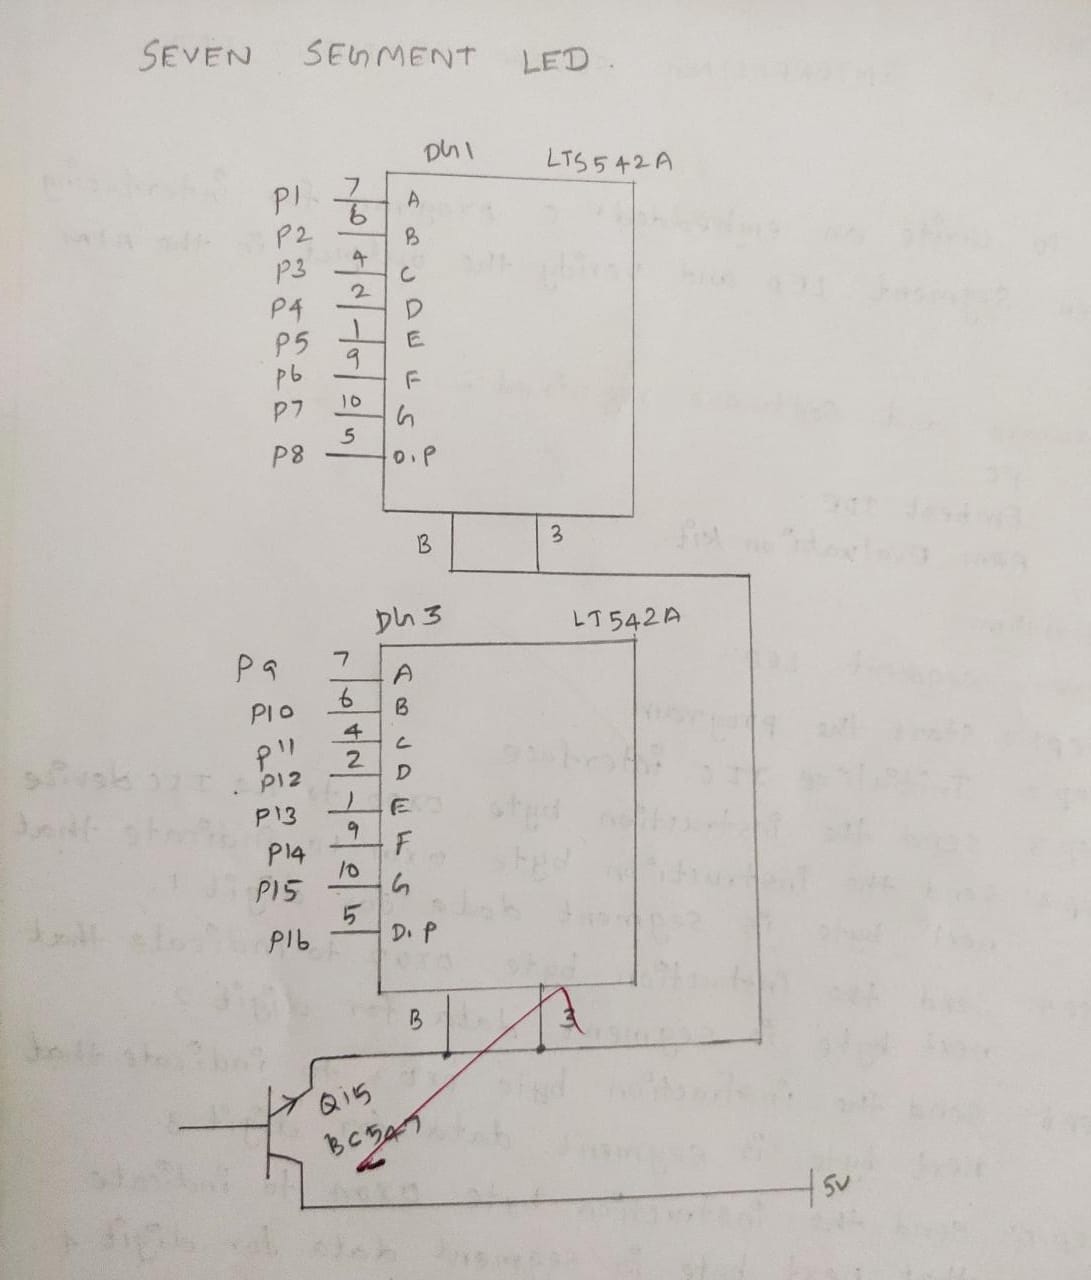 SEVEN SEGMENT LED.
DG1 LTS542A
P1 7 A
P2 6 B
P3 4 C
P4 2 D
P5 1 E
P6 9 F
P7 10 G
P8 5 D.P
B 3
DG3 LT542A
P9 7 A
P10 6 B
P11 4 C
P12 2 D
P13 1 E
P14 9 F
P15 10 G
P16 5 D.P
B 3
Q15
BC547
5V